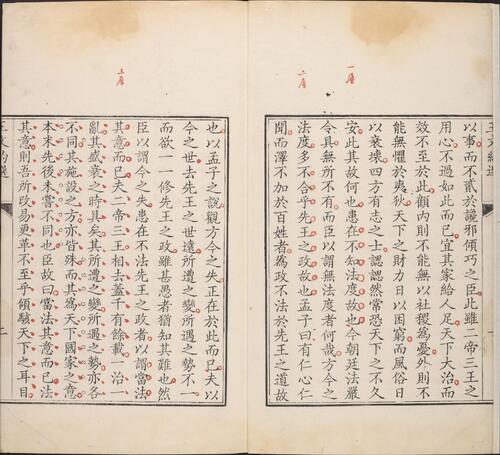 一層
二層
以事而不貳於讒邪傾巧之臣此雖二帝三王之
用心不過如此而已宜其家給人足天下大治而
效不至於此顧內則不能無以社稷為憂外則不
能無懼於夷狄天下之財力日以困窮而風俗日
以衰壞四方有志之士諰諰然常恐天下之不久
安此其故何也患在不知法度故也今朝廷法嚴
令具無所不有而臣以謂無法度者何哉方今之
法度多不合乎先王之政故也孟子曰有仁心仁
聞而澤不加於百姓者為政不法於先王之道故
上層
也以孟子之說觀方今之失正在於此而已夫以
今之世去先王之世遠所遭之變所遇之勢不一
而欲一一修先王之政雖甚愚者猶知其難也然
臣以謂今之失患在不法先王之政者以謂當法
其意而已夫二帝三王相去蓋千有餘載一治一
亂其盛衰之時具矣其所遭之變所遇之勢亦各
不同其施設之方亦皆殊而其為天下國家之意
本末先後未嘗不同也臣故曰當法其意而已法
其意則吾所改易更革不至乎傾駭天下之耳目
二